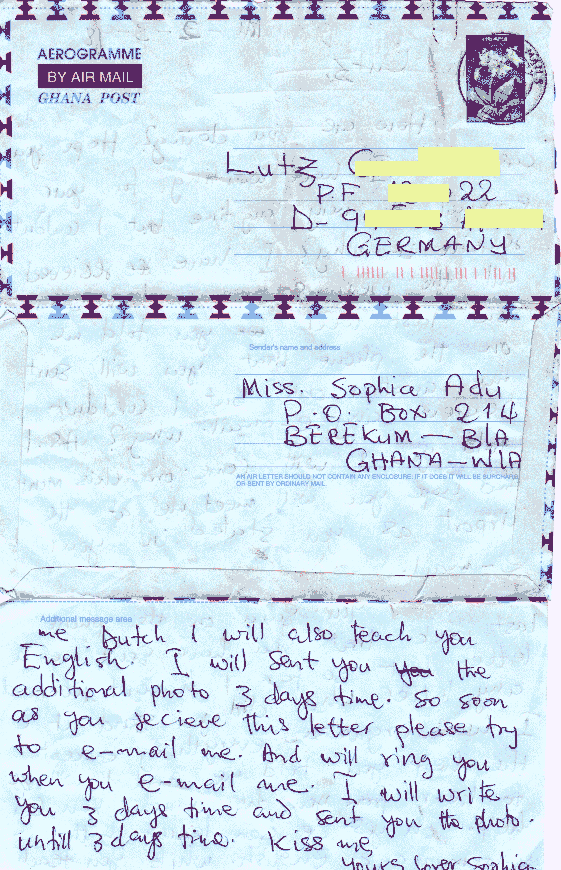 AEROGRAMME
BY AIR MAIL
GHANA POST
Lutz
P.F 22
D- 9
GERMANY
Sender's name and address
Miss. Sophia Adu
P.O. Box 214
BEREKUM — B/A
GHANA — W/A
AN AIR LETTER SHOULD NOT CONTAIN ANY ENCLOSURE: IF IT DOES IT WILL BE SURCHARGED
OR SENT BY ORDINARY MAIL
Additional message area
me Dutch I will also teach you
English. I will sent you you the
additional photo 3 days time. So soon
as you recieve this letter please try
to e-mail me. And will ring you
when you e-mail me. I will write
you 3 days time and sent you the photo.
untill 3 days time. Kiss me,
Yours lover Sophia